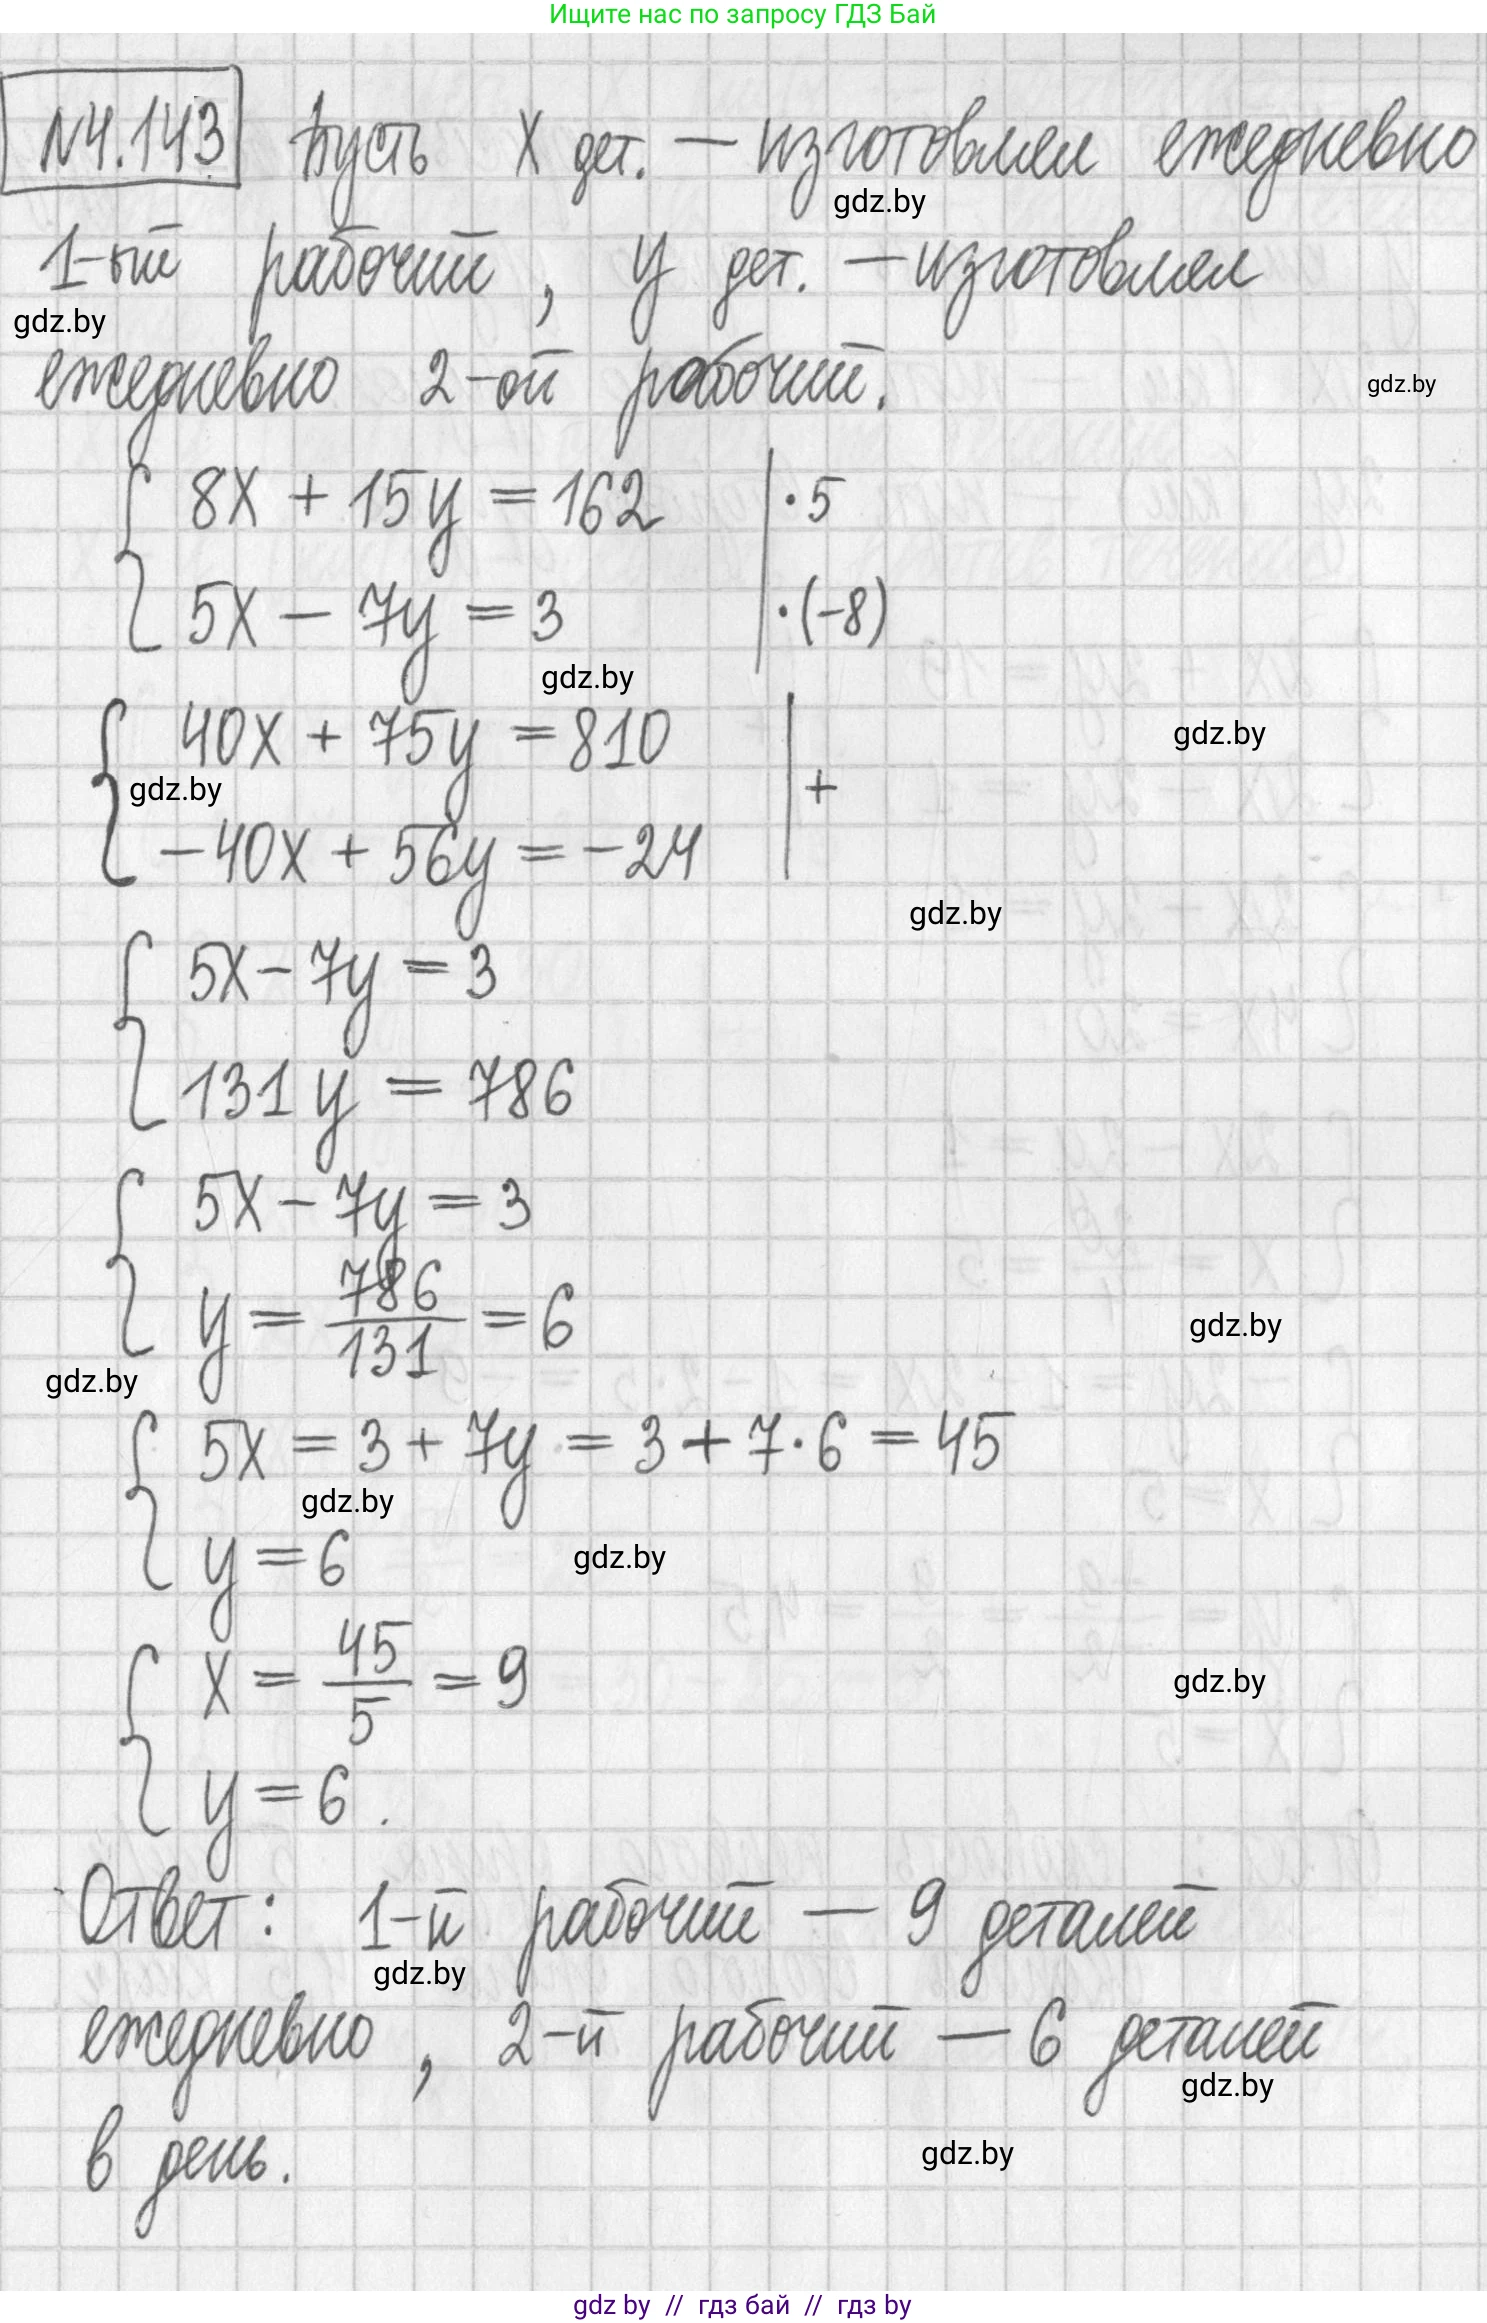 Ищите нас по запросу ГДЗ Бай
№4.143 Пусть x дет. — изготовлял ежедневно
gdz.by
1-ый рабочий, y дет. — изготовлял
gdz.by
ежедневно 2-ой рабочий.
gdz.by
8x + 15y = 162 | ·5
5x − 7y = 3 | ·(−8)
gdz.by
40x + 75y = 810
gdz.by
gdz.by
+
−40x + 56y = −24
gdz.by
5x − 7y = 3
131y = 786
5x − 7y = 3
y = 786/131 = 6
gdz.by
gdz.by
5x = 3 + 7y = 3 + 7·6 = 45
gdz.by
y = 6
gdz.by
x = 45/5 = 9
gdz.by
y = 6.
Ответ: 1-й рабочий — 9 деталей
gdz.by
ежедневно, 2-й рабочий — 6 деталей
gdz.by
в день.
gdz.by
gdz by // гдз бай // гдз by